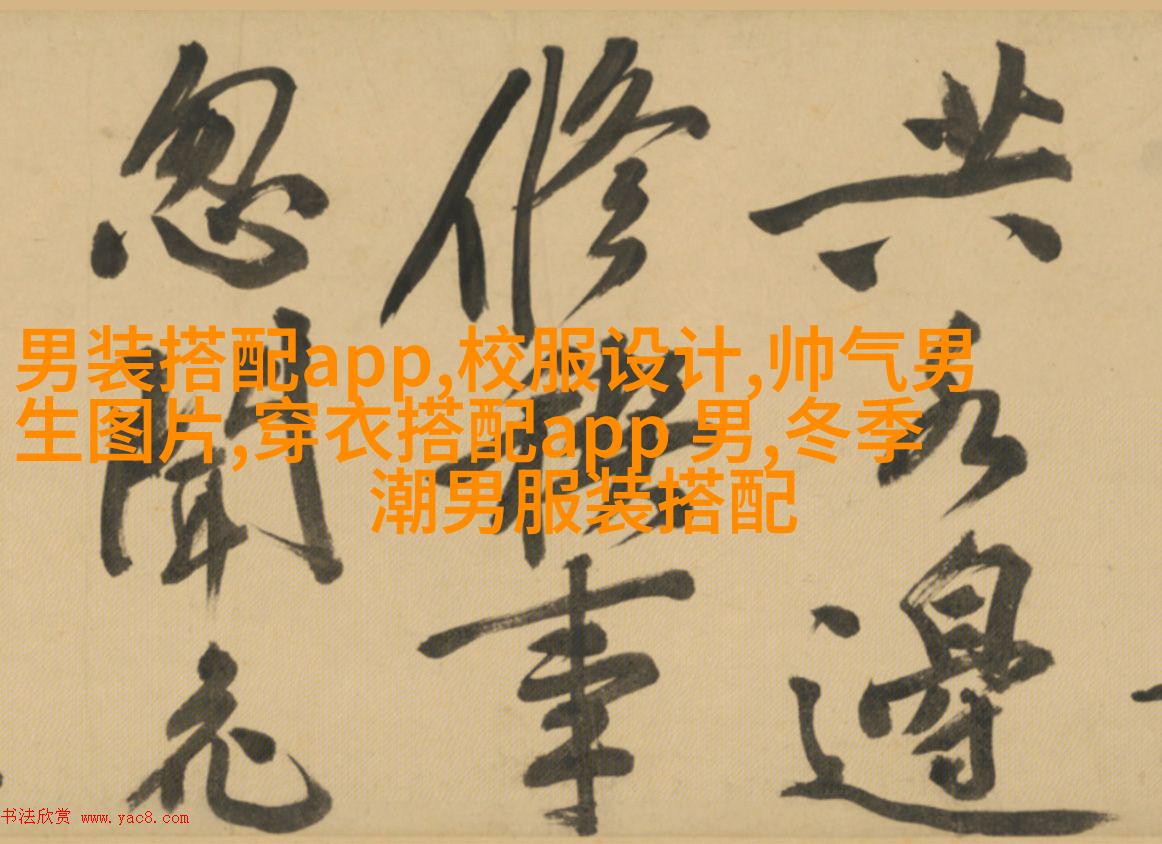 共水邊
修禊事
忽聞花
男装搭配app,校服设计,帅气男
生图片,穿衣搭配app 男,冬季
潮男服装搭配
书法欣赏 www.yac8.com